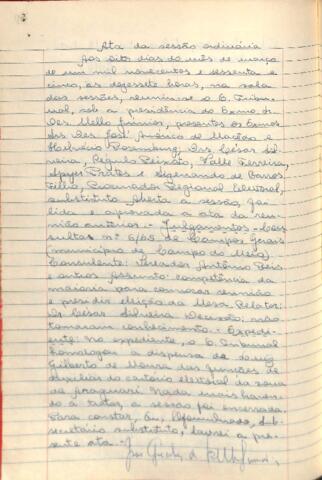 Ata da sessão ordinária
Aos oito dias do mês de março
de um mil novecentos e sessenta e
cinco, às dezessete horas, na sala
das sessões, reuniu-se o E. Tribu-
nal, sob a presidência do Exmo. Sr.
Des. Mello Júnior, presentes os Exmos.
Srs. Des. José Américo de Macêdo e
Helvécio Rosenburg, Drs. César Sil-
veira, Régulo Peixoto, Valle Ferreira,
Ayres Prates e Sigenando de Barros
Filho, Procurador Regional Eleitoral,
substituto. Aberta a sessão, foi
lida e aprovada a ata da reu-
nião anterior. - Julgamentos - Con-
sulta nº 6/65 de Campos Gerais
(município de Campo do Meio)
Consulente: Vereador Antônio Reis
e outros. Assunto: competência da
maioria para convocar reunião
e presidir eleição da Mesa. Relator:
Dr. César Silveira. Decisão: não
tomaram conhecimento. - Expedi-
ente: No expediente, o E. Tribunal
homologou a dispensa de
Gilberto de Moura das funções de
Auxiliar do cartório eleitoral da zona
de Araguari. Nada mais haven-
do a tratar, a sessão foi encerrada.
Para constar, Eu,
secretário substituto, lavrei a pre-
sente ata. -